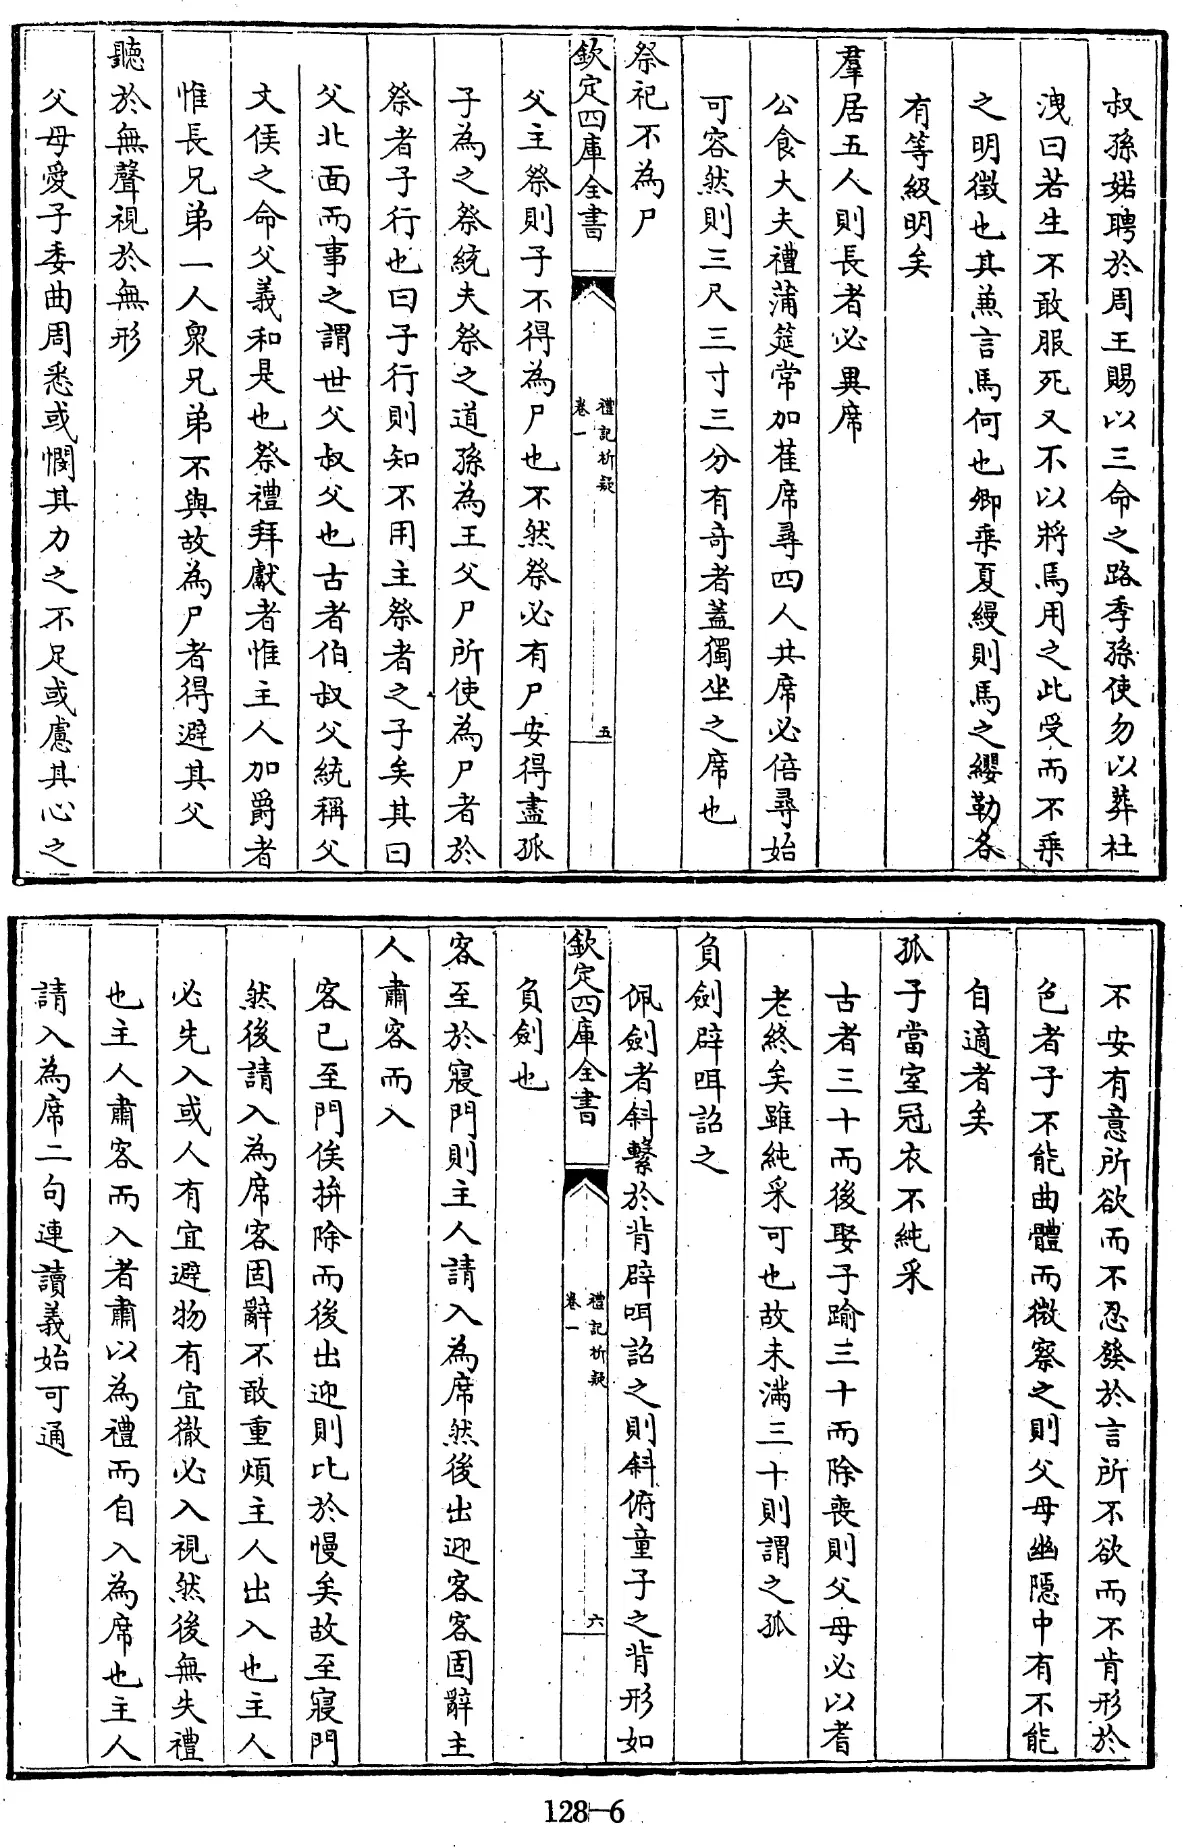 叔孫婼聘於周王賜以三命之路季孫使勿以葬杜
洩曰若生不敢服死又不以將焉用之此受而不乘
之明徵也其兼言馬何也卿乘夏縵則馬之纓勒各
有等級明矣
羣居五人則長者必異席
公食大夫禮蒲筵常加萑席尋四人共席必倍尋始
可容然則三尺三寸三分有奇者蓋獨坐之席也
祭祀不為尸
欽定四庫全書
禮記析疑
卷一
五
父主祭則子不得為尸也不然祭必有尸安得盡孤
子為之祭統夫祭之道孫為王父尸所使為尸者於
祭者子行也曰子行則知不用主祭者之子矣其曰
父北面而事之謂世父叔父也古者伯叔父統稱父
文侯之命父義和是也祭禮拜獻者惟主人加爵者
惟長兄弟一人衆兄弟不與故為尸者得避其父
聽於無聲視於無形
父母愛子委曲周悉或憫其力之不足或慮其心之
不安有意所欲而不忍發於言所不欲而不肯形於
色者子不能曲體而微察之則父母幽隱中有不能
自適者矣
孤子當室冠衣不純采
古者三十而後娶子踰三十而除喪則父母必以耆
老終矣雖純采可也故未滿三十則謂之孤
負劍辟咡詔之
佩劍者斜繫於背辟咡詔之則斜俯童子之背形如
欽定四庫全書
禮記析疑
卷一
六
負劍也
客至於寢門則主人請入為席然後出迎客客固辭主
人肅客而入
客已至門俟拚除而後出迎則比於慢矣故至寢門
然後請入為席客固辭不敢重煩主人出入也主人
必先入或人有宜避物有宜徹必入視然後無失禮
也主人肅客而入者肅以為禮而自入為席也主人
請入為席二句連讀義始可通
128-6